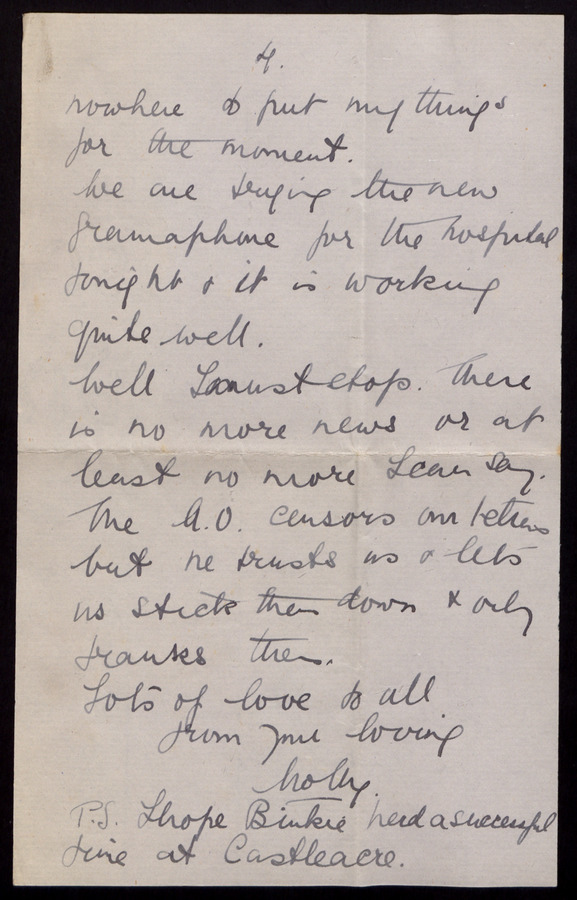 4.
nowhere to put my things
for the moment.
We are trying the new
gramaphone for the hospital
tonight & it is working
quite well.
Well I must stop. There
is no more news or at
least no more I can say.
The A.O. censors our letters
but he trusts us & lets
us stick them down & only
franks them.
Lots of love to all
from your loving
Molly.
P.S. I hope Binkie had a successful
time at Castleacre.